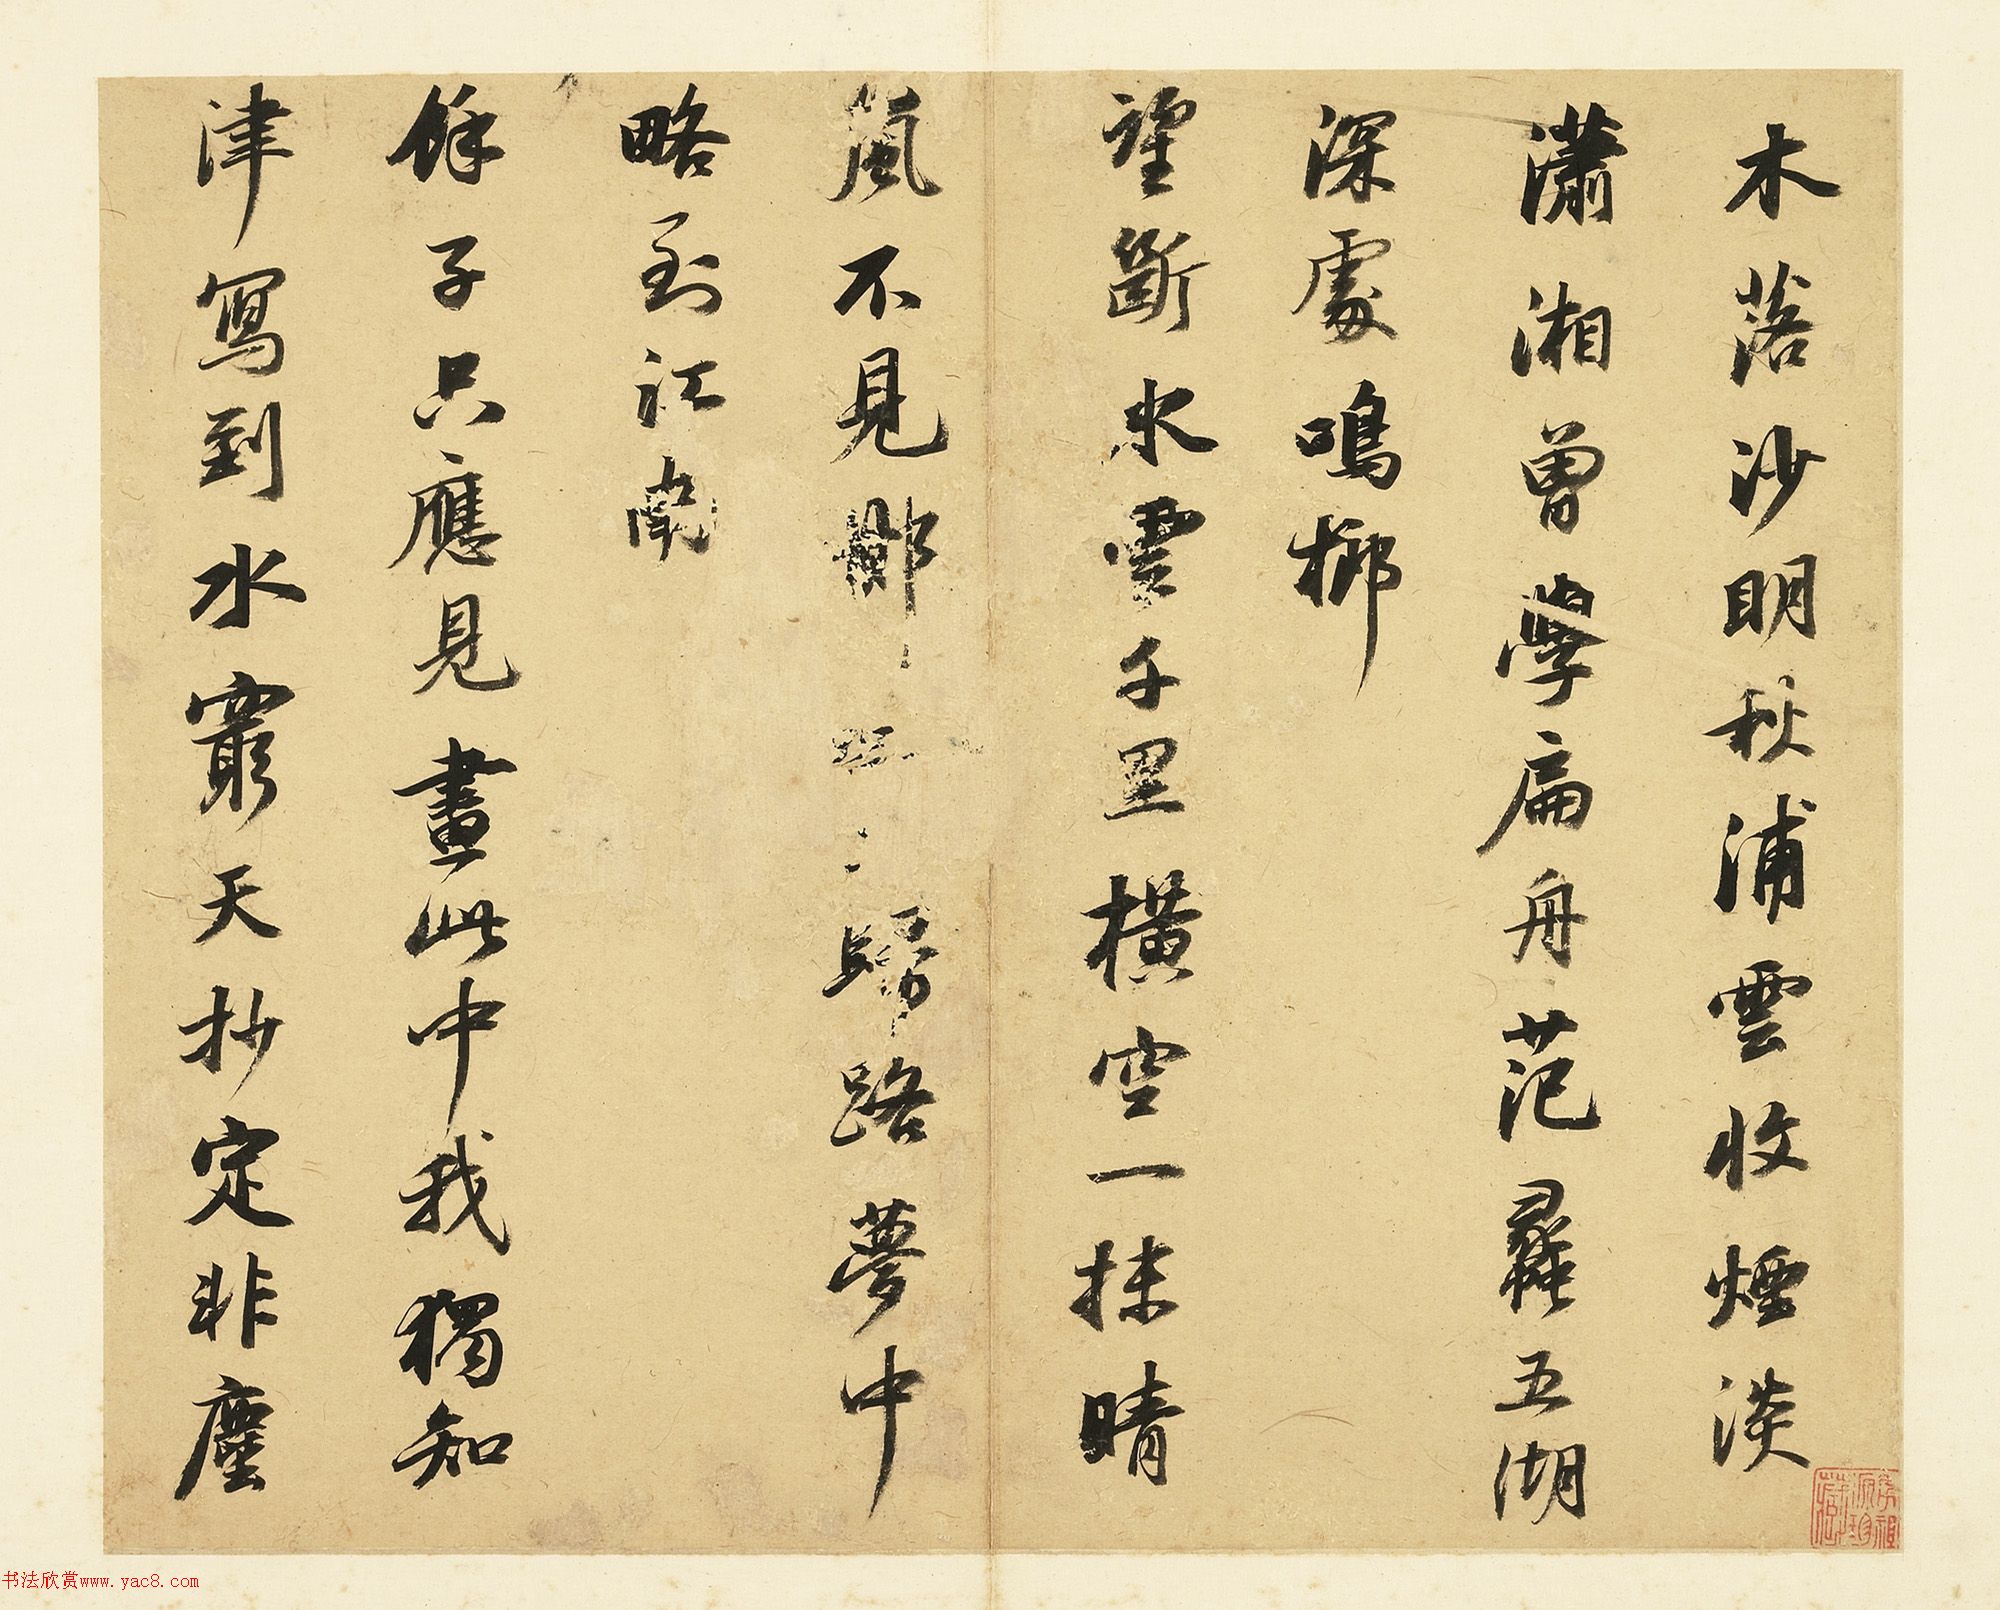 木落沙明秋浦雲收煙淡
瀟湘曾學扁舟范蠡五湖
深處鳴榔
望斷水雲千里橫空一抹晴
嵐不見歸路夢中
略到江南
餘子只應見畫此中我獨知
津寫到水窮天抄定非塵
书法欣赏www.yac8.com